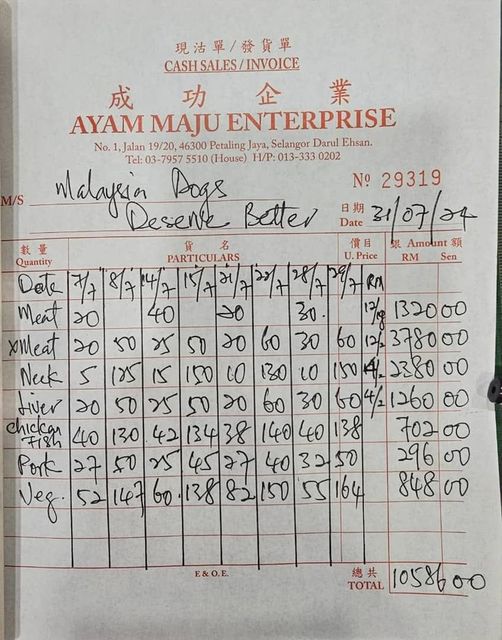 現活單/發貨單
CASH SALES/INVOICE
成功企業
AYAM MAJU ENTERPRISE
No. 1, Jalan 19/20, 46300 Petaling Jaya, Selangor Darul Ehsan.
Tel: 03-7957 5510 (House) H/P: 013-333 0202
M/S Malaysia Dogs Deserve Better
No 29319
日期 Date 31/07/24
數量 貨名 價目 銀 Amount 額
Quantity PARTICULARS U. Price RM Sen
Date 7/7 8/7 14/7 15/7 21/7 22/7 28/7 29/7 RM
Meat 20 40 20 30 12/kg 1320 00
xMeat 20 50 25 50 20 60 30 60 12/2 3780 00
Neck 5 125 15 150 10 130 10 150 4/2 2380 00
Liver 20 50 25 50 20 60 30 60 4/2 1260 00
Chicken Fish 40 130 42 134 38 140 40 138 702 00
Pork 27 50 25 45 27 40 32 50 296 00
Veg. 52 147 60 138 82 150 55 164 848 00
E & O.E.
總共 TOTAL 10586 00